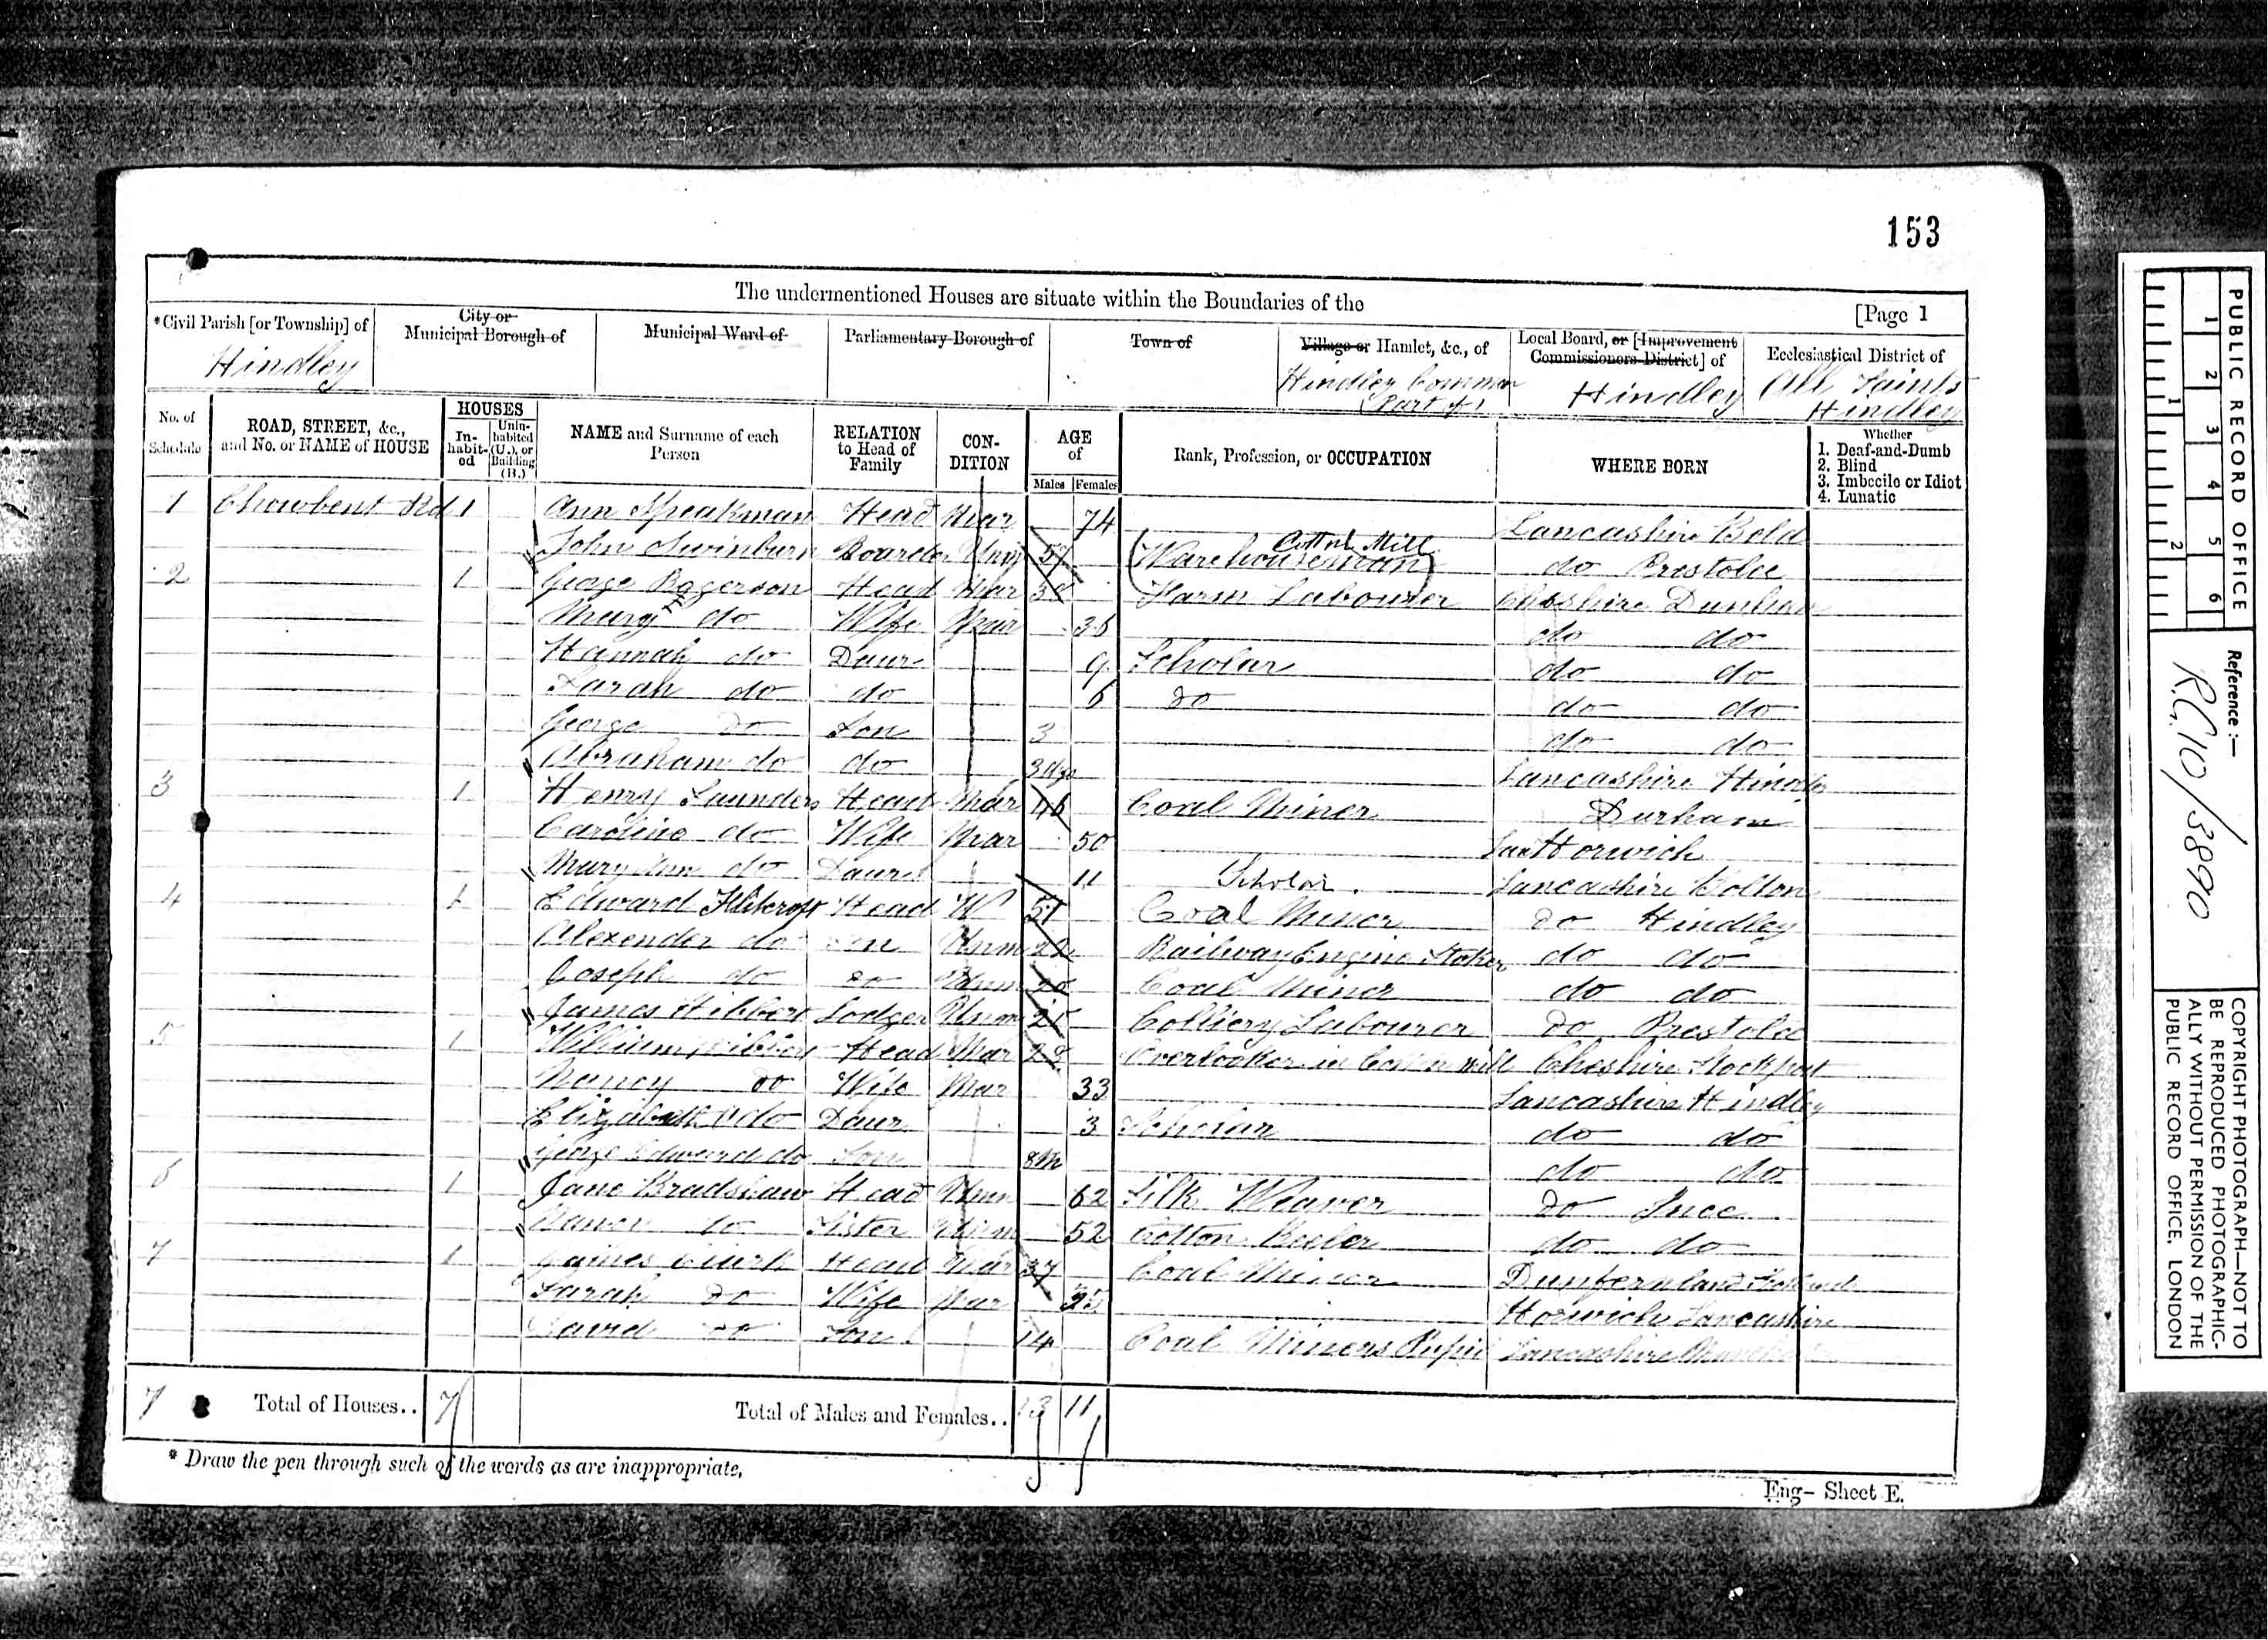 153
The undermentioned Houses are situate within the Boundaries of the
[Page 1
*Civil Parish [or Township] of
City or Municipal Borough of
Municipal Ward of
Parliamentary Borough of
Town of
Village or Hamlet, &c., of
Local Board, or [Improvement Commissioners District] of
Ecclesiastical District of
Hindley
Hindley Common (Part of)
Hindley
All Saints Hindley
No. of Schedule
ROAD, STREET, &c., and No. or NAME of HOUSE
HOUSES
In-habit-ed
Unin-habited (U.), or Building (B.)
NAME and Surname of each Person
RELATION to Head of Family
CON-DITION
AGE of
Males
Females
Rank, Profession, or OCCUPATION
WHERE BORN
Whether
1. Deaf-and-Dumb
2. Blind
3. Imbecile or Idiot
4. Lunatic
1 Chowbent Rd 1 Ann Speakman Head Mar 74 Lancashire Bold
John Swinburn Boarder Unm Cotton Mill Warehouseman do Prestolee
2 1 George Rogerson Head Mar Farm Labourer Cheshire Dunham
Mary do Wife Mar 36 do do
Hannah do Daur 9 Scholar do do
Sarah do do 6 do do do
George do Son 3 do do
Abraham do do Lancashire Hindley
3 1 Henry Saunders Head Mar 46 Coal Miner Durham
Caroline do Wife Mar 50 Lan Horwich
Mary Ann do Daur 11 Scholar Lancashire Bolton
4 1 Edward Head W 51 Coal Miner do Hindley
Alexender do Son Unm 22 Railway Engine Stoker do do
Joseph do do Unm 20 Coal Miner do do
James Hibbert Lodger Unm 21 Colliery Labourer do Prestolee
5 1 William Head Mar 28 Overlooker in Cotton mill Cheshire Stockport
Nancy do Wife Mar 33 Lancashire Hindley
Elizabeth do Daur 3 Scholar do do
George Edward do Son 8M do do
6 1 Jane Bradshaw Head Unm 62 Silk Weaver do Ince
do Sister Unm 52 Cotton Reeler do do
7 1 James Clark Head Mar 37 Coal Miner
Sarah do Wife Mar Horwich Lancashire
David do Son 14 Coal Miners Lancashire
7 Total of Houses.. 7
Total of Males and Females.. 13 11
* Draw the pen through such of the words as are inappropriate.
Eng- Sheet E.
PUBLIC RECORD OFFICE
1 2 3 4 5 6
1 2
Reference :-
R.G. 10/3890
COPYRIGHT PHOTOGRAPH—NOT TO
BE REPRODUCED PHOTOGRAPHIC-
ALLY WITHOUT PERMISSION OF THE
PUBLIC RECORD OFFICE, LONDON